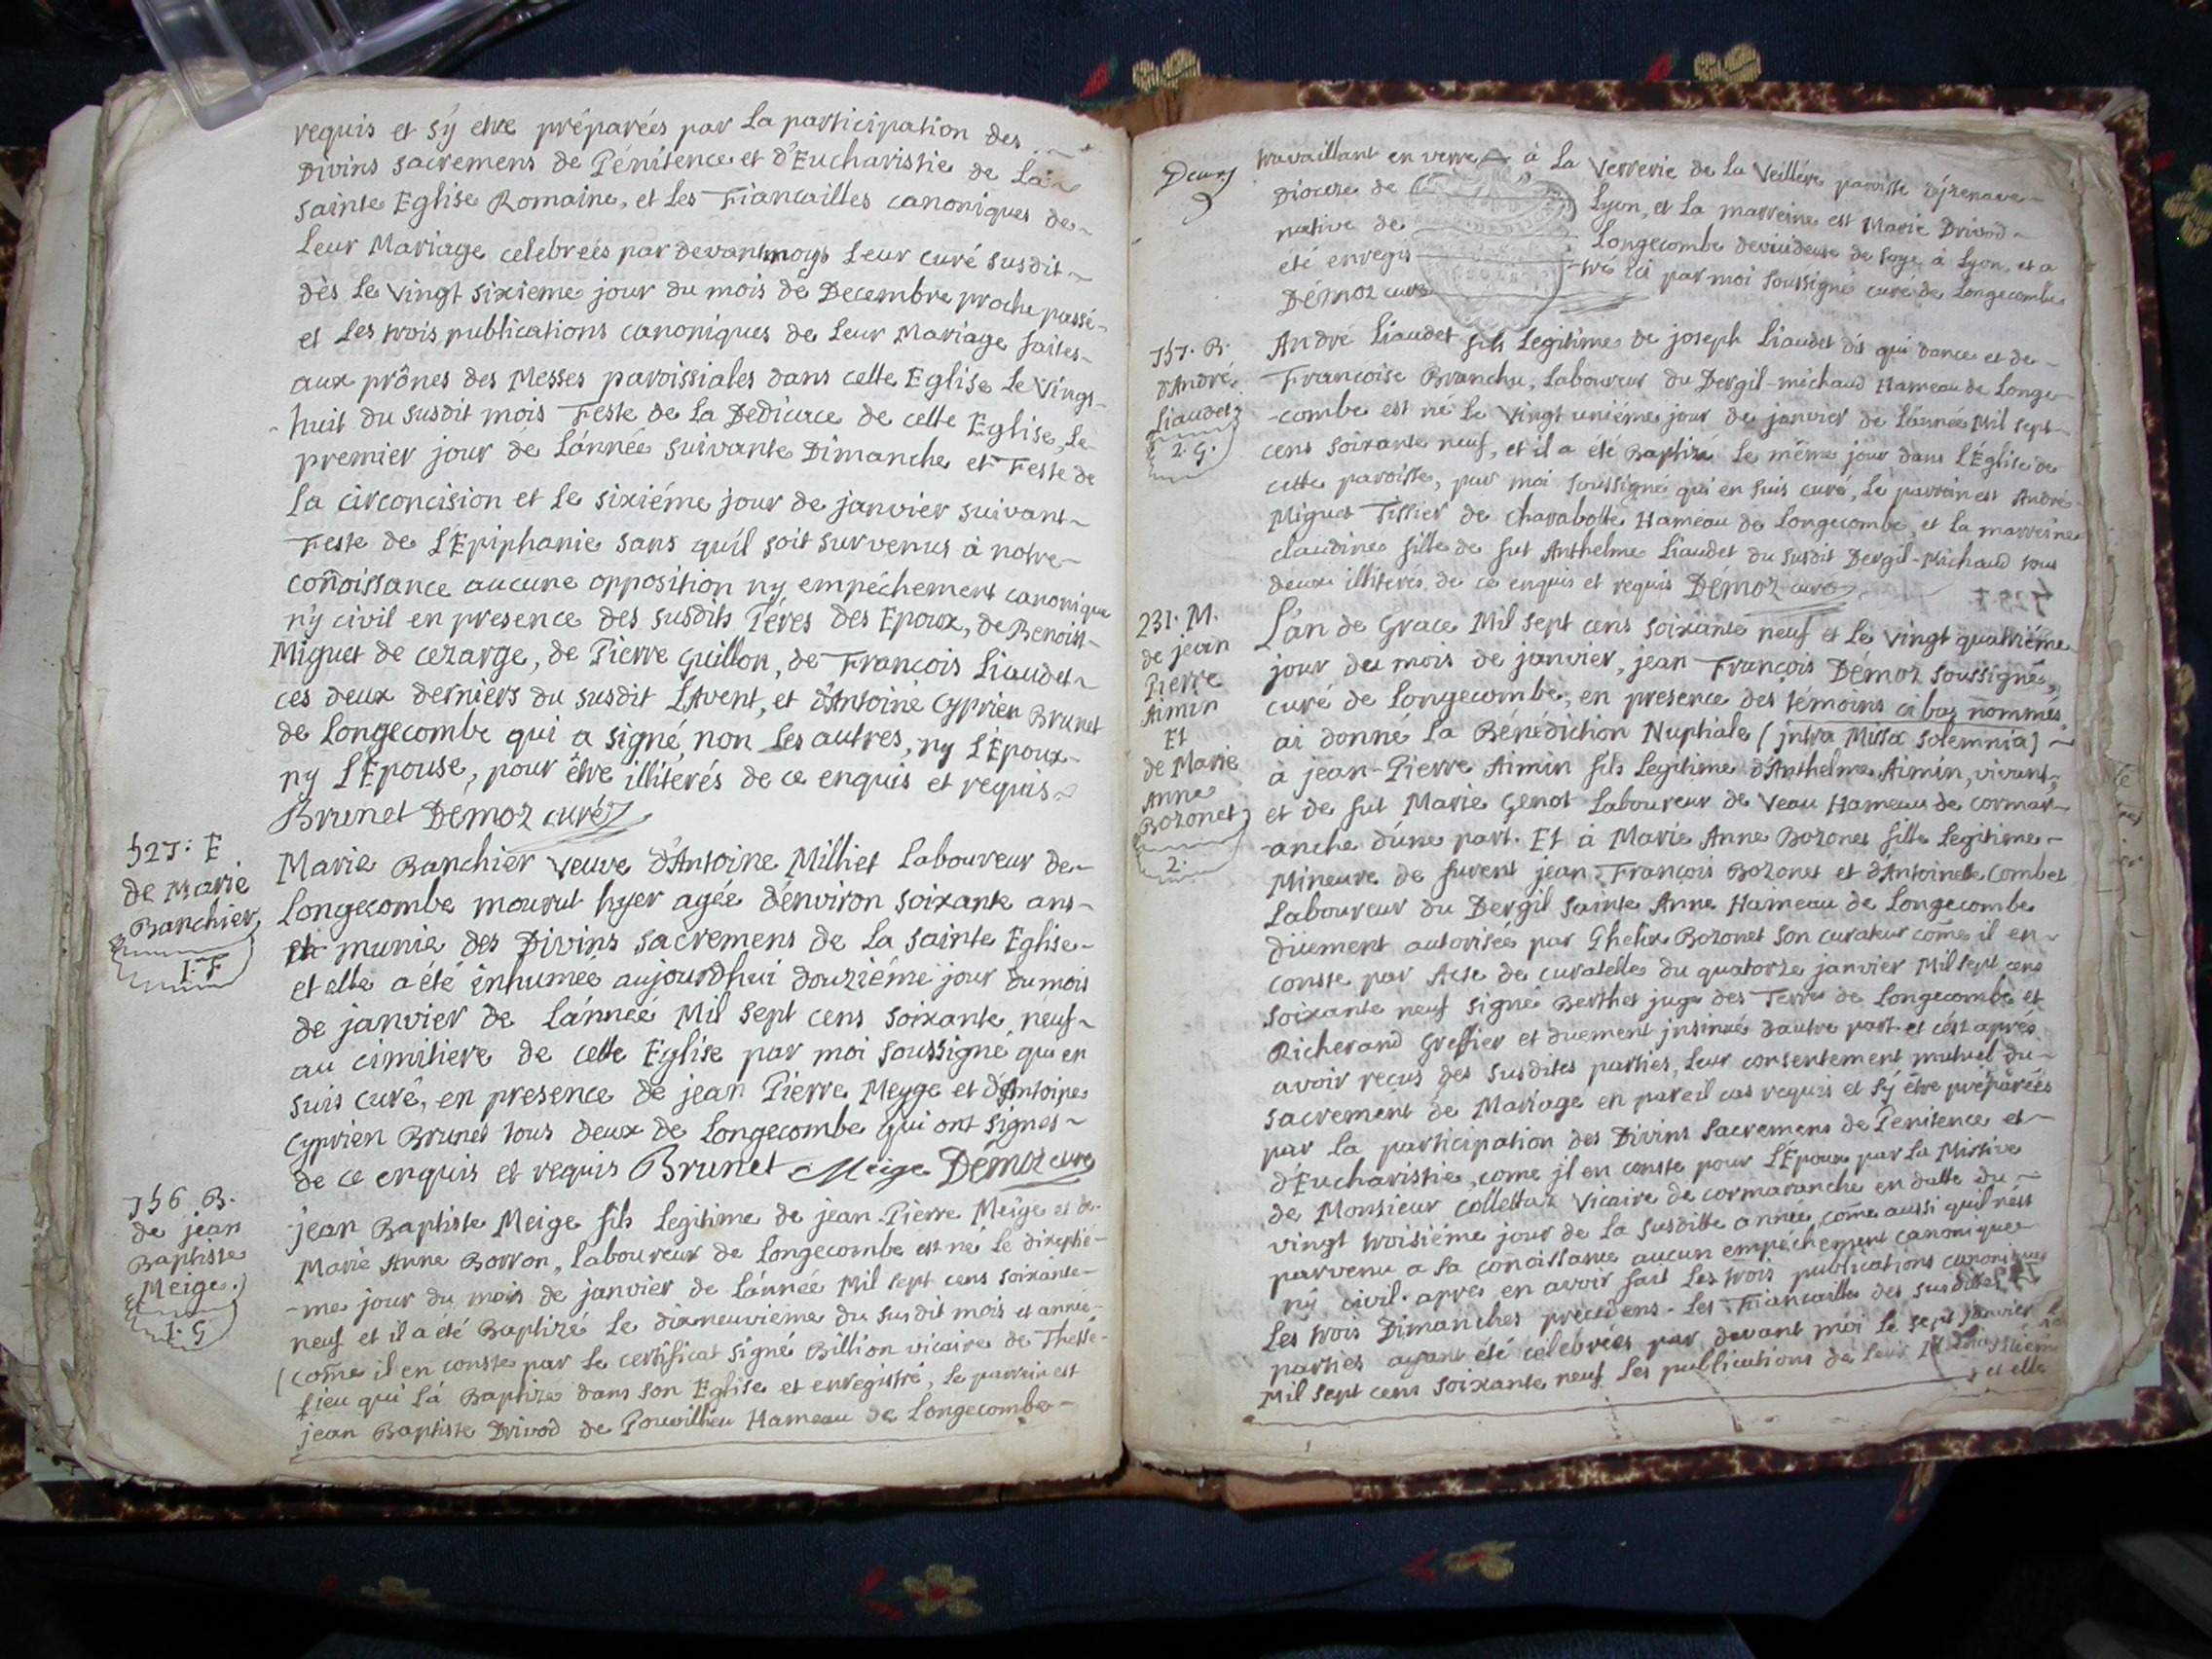 requis et s'ÿ etre préparées par La participation des
Divins sacremens de Pénitence et d'Eucharistie de La
sainte Eglise Romaine, et Les Fiancailles canoniques de
Leur Mariage celebrées par devant Leur curé susdit
dès Le vingt sixieme jour du mois de Decembre proche passé
et Les trois publications canoniques de Leur Mariage faites
aux prônes des Messes paroissiales dans cette Eglise Le Vingt
huit du susdit mois Feste de La Dedicace de cette Eglise, Le
premier jour de L'année suivante Dimanche et Feste de
La circoncision et Le sixiéme jour de janvier suivant
Feste de L'Epiphanie sans qu'il soit survenus à notre
conoissance aucune opposition ny empéchement canonique
n'y civil en presence des susdits Péres des Epoux, de Benoist
Miguet de cezarge, de Pierre Guillon, de François Liaudet
ces deux derniers du susdit L'Avent, et d'Antoine Cyprien Brunet
de Longecombe qui a signé, non Les autres, ny L'Epoux
ny L'Epouse, pour être illiterés de ce enquis et requis
Brunet Démoz curé
527: E
de Marie
Banchier
1. F
Marie Banchier veuve d'Antoine Milliet Laboureur de
Longecombe mourut hyer agée d'environ soixante ans
munie des Divins sacremens de La sainte Eglise
et elle a été inhumée aujourd'hui douziéme jour du mois
de janvier de L'année Mil sept cens soixante neuf
au cimitiere de cette Eglise par moi soussigné qui en
suis curé, en presence de jean Pierre Meyge et d'Antoine
Cyprien Brunet tous deux de Longecombe qui ont signés
de ce enquis et requis Brunet Meige Démoz curé
756. B.
de jean
Baptiste
Meige.
1. G
jean Baptiste Meige fils Legitime de jean-Pierre Meige et de
Marie Anne Borron, Laboureur de Longecombe est né Le dixseptié-
-me jour du mois de janvier de L'année Mil sept cens soixante
neuf et il a été Baptizé Le dixneuvieme du susdit mois et année
(come il en conste par Le certificat signé Billion vicaire de Thesi-
-lieu qui L'a Baptizé dans son Eglise et enregistré, Le parrein est
jean Baptiste Drivod de Pouvillieu Hameau de Longecombe
travaillant en verre à La Verrerie de La Veillére paroisse
Diocese de Lyon, et La marreine est Marie Drivod
native de Longecombe devideuse de soye à Lyon, et a
été enregis-tré ici par moi soussigné curé de Longecombe
Démoz curé
757. B.
d'André
Liaudet
2. G.
André Liaudet fils Legitime de joseph Liaudet dit qui dance et de
Francoise Branche, Laboureur du Dergil-michaud Hameau de Longe-
-combe est né Le vingt uniéme jour de janvier de L'année Mil sept
cens soixante neuf, et il a été Baptizé Le même jour dans L'Église de
cette paroisse, par moi soussigné qui en suis curé, Le parrein est André
Miguet Tissier de Charabotte Hameau de Longecombe, et La marreine
claudine fille de fut Anthelme Liaudet du susdit Dergil-Michaud tous
deux illiterés de ce enquis et requis Démoz curé
231. M.
de jean
Pierre
Aimin
Et
de Marie
Anne
Bozonet
2.
L'an de Grace Mil sept cens soixante neuf et Le vingt quatriéme
jour du mois de janvier, jean François Démoz soussigné,
curé de Longecombe, en presence des témoins ci bas nommés,
ai donné La Bénediction Nuptiale (jntra Missæ solemnia)
à jean-Pierre Aimin fils Legitime d'Anthelme Aimin, vivant,
et de fut Marie Genot Laboureur de Veau Hameau de cormar-
-anche d'une part. Et à Marie Anne Bozonet fille Legitime
Mineure de furent jean-François Bozonet et d'Antoinette Combet
Laboureur du Dergil sainte Anne Hameau de Longecombe
düement autorisée par Bozonet son curateur come il en
conste par Acte de curatelle du quatorze janvier Mil sept cens
soixante neuf signé Berthet juge des Terres de Longecombe et
Richerand Greffier et duement jnsinué d'autre part. et c'est aprés
avoir reçus des susdites parties, Leur consentement mutuel du
sacrement de Mariage en pareil cas requis et s'ÿ être préparées
par La participation des Divins Sacremens de Penitence et
d'Eucharistie, come jl en conste pour L'Epoux par La Missive
de Monsieur Collettaz Vicaire de cormaranche en datte du
vingt troisiéme jour de La susditte année, come aussi qu'il n'est
parvenu a sa conoissance aucun empéchement canonique
ny civil. apres en avoir fait Les trois publications canoniques
Les trois Dimanches precedens. Les Fiancailles des susdittes
parties ayant été celebrées par devant moi Le sept janvier
Mil sept cens soixante neuf Les publications de Leur
et elle